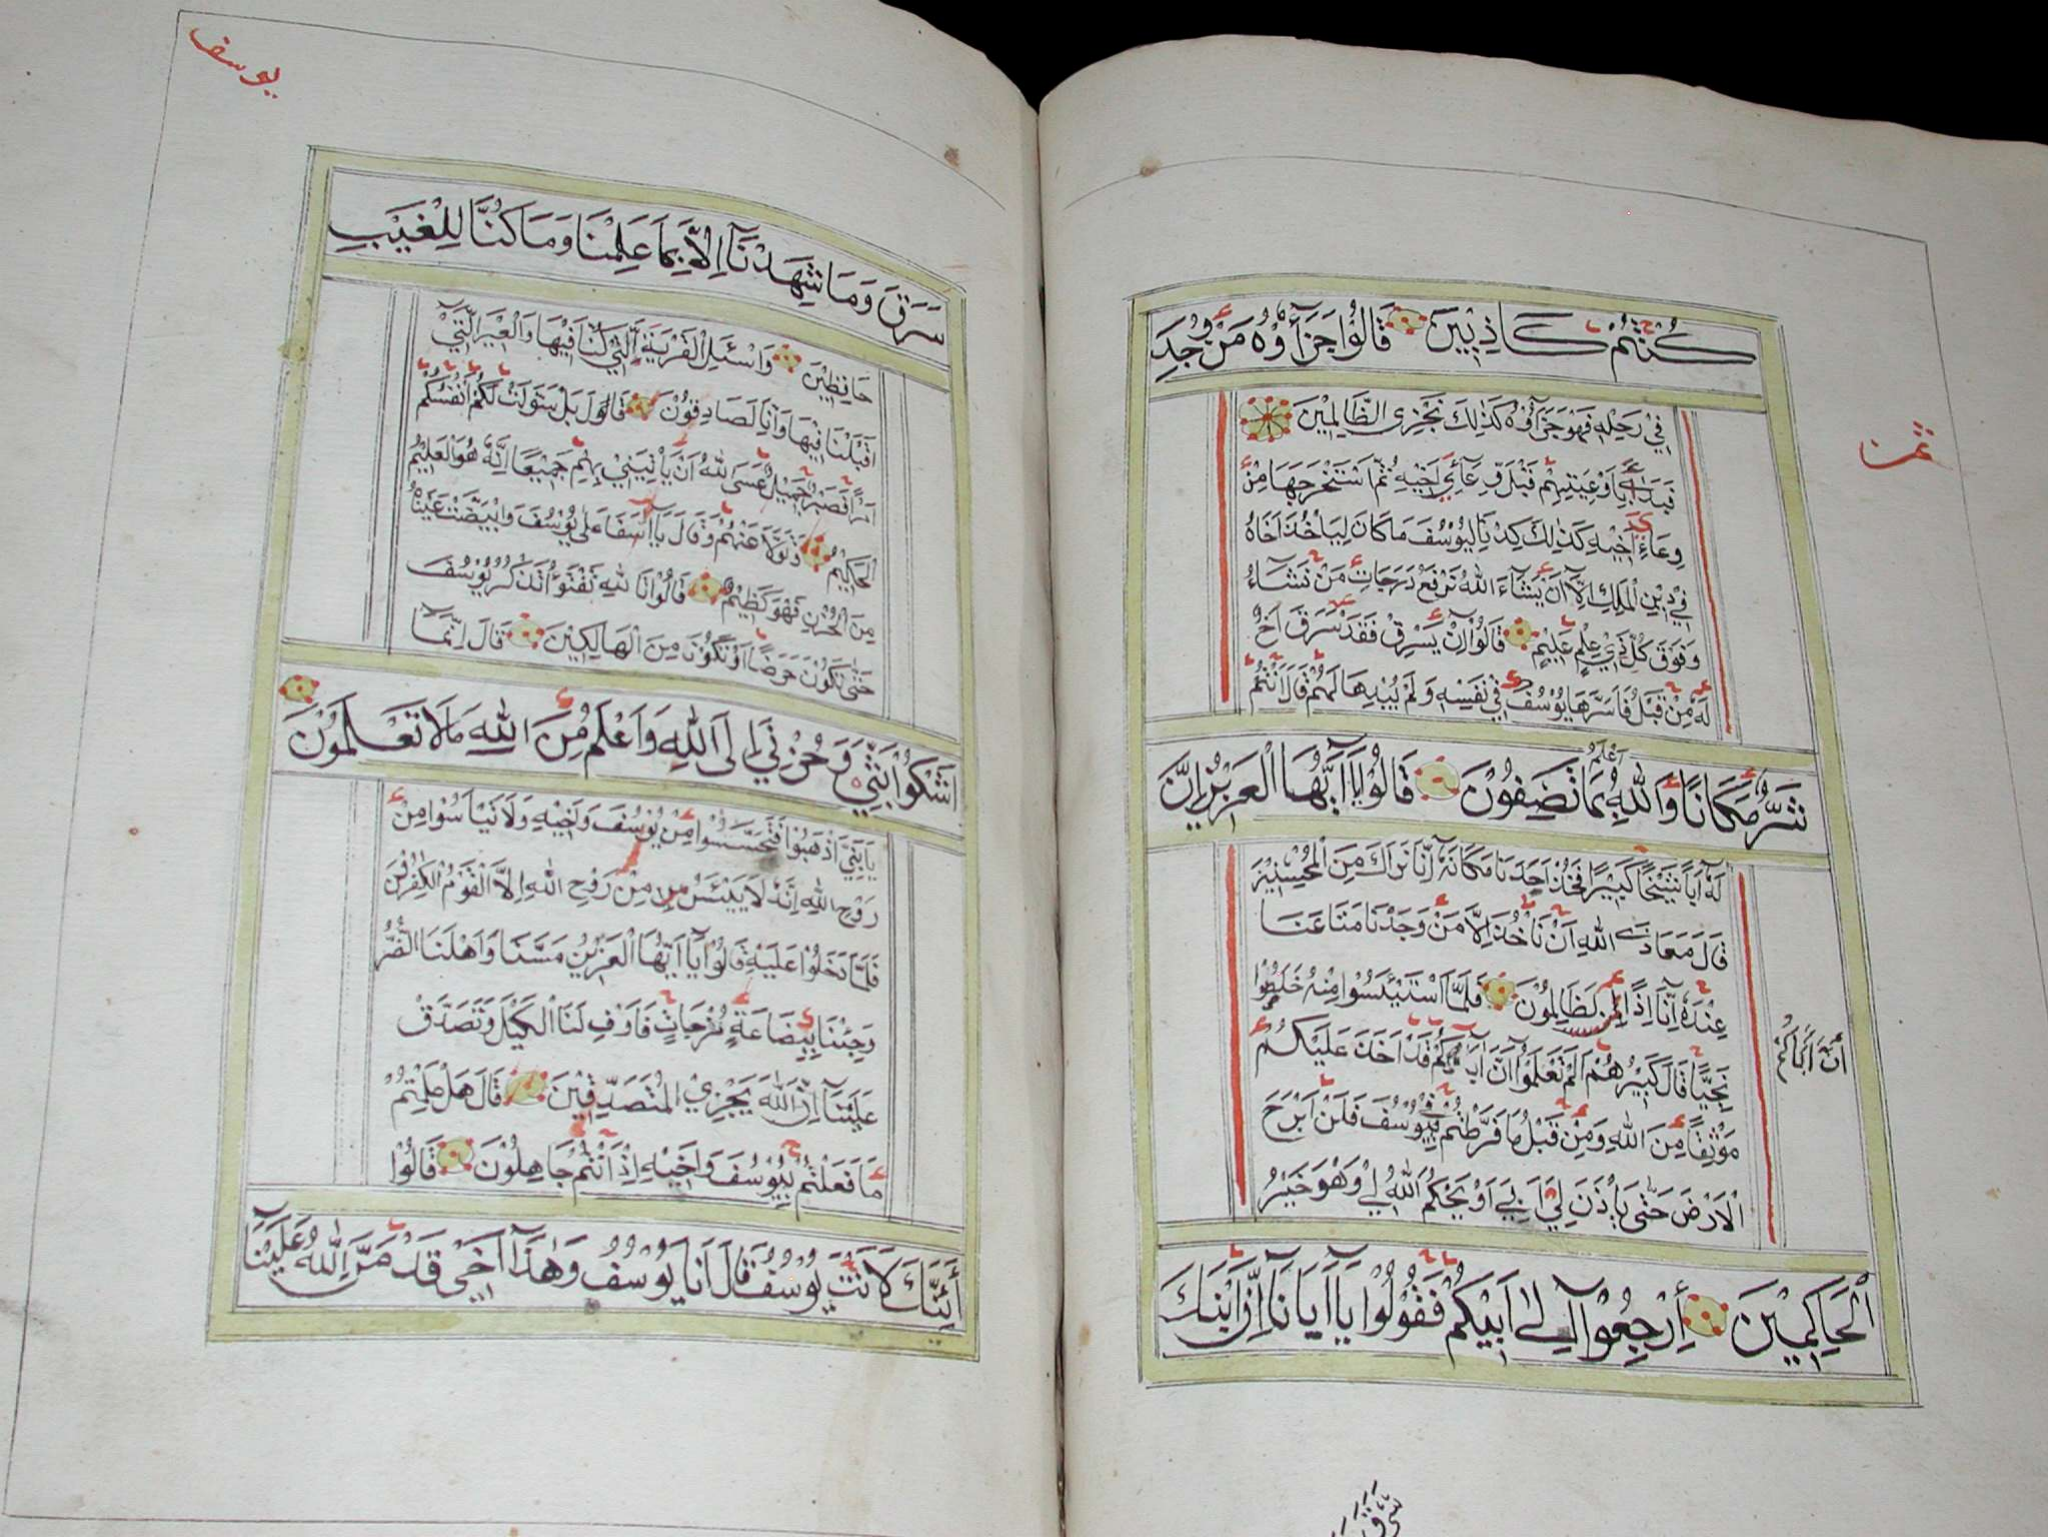 كُنْتُمْ كَاذِبِيْنَ قَالُوْا جَزَآؤُهُ مَنْ وُجِدَ
فِيْ رَحْلِهِ فَهُوَ جَزَآؤُهُ كَذٰلِكَ نَجْزِي الظَّالِمِيْنَ
ثمن
فَبَدَاَ بِاَوْعِيَتِهِمْ قَبْلَ وِعَآءِ اَخِيْهِ ثُمَّ اسْتَخْرَجَهَا مِنْ
وِعَاءِ اَخِيْهِ كَذٰلِكَ كِدْنَا لِيُوْسُفَ مَا كَانَ لِيَاْخُذَ اَخَاهُ
فِيْ دِيْنِ الْمَلِكِ اِلَّا اَنْ يَشَآءَ اللهُ نَرْفَعُ دَرَجَاتٍ مَنْ نَشَاءُ
وَفَوْقَ كُلِّ ذِيْ عِلْمٍ عَلِيْمٌ قَالُوْا اِنْ يَسْرِقْ فَقَدْ سَرَقَ اَخٌ
لَهُ مِنْ قَبْلُ فَاَسَرَّهَا يُوْسُفُ فِيْ نَفْسِهِ وَلَمْ يُبْدِهَا لَهُمْ قَالَ اَنْتُمْ
شَرٌّ مَكَانًا وَاللهُ اَعْلَمُ بِمَا تَصِفُوْنَ قَالُوْا يَا اَيُّهَا الْعَزِيْزُ اِنَّ
لَهُ اَبًا شَيْخًا كَبِيْرًا فَخُذْ اَحَدَنَا مَكَانَهُ اِنَّا نَرَاكَ مِنَ الْمُحْسِنِيْنَ
قَالَ مَعَاذَ اللهِ اَنْ نَاْخُذَ اِلَّا مَنْ وَجَدْنَا مَتَاعَنَا
عِنْدَهُ اِنَّا اِذًا لَظَالِمُوْنَ فَلَمَّا اسْتَيْئَسُوْا مِنْهُ خَلَصُوْا
نَجِيًّا قَالَ كَبِيْرُهُمْ اَلَمْ تَعْلَمُوْا اَنَّ اَبَاكُمْ قَدْ اَخَذَ عَلَيْكُمْ
اَنَّ اَبَاكُمْ
مَوْثِقًا مِنَ اللهِ وَمِنْ قَبْلُ مَا فَرَّطْتُمْ فِيْ يُوْسُفَ فَلَنْ اَبْرَحَ
الْاَرْضَ حَتّٰى يَاْذَنَ لِيْ اَبِيْ اَوْ يَحْكُمَ اللهُ لِيْ وَهُوَ خَيْرُ
الْحَاكِمِيْنَ اِرْجِعُوْا اِلٰى اَبِيْكُمْ فَقُوْلُوْا يَا اَبَانَا اِنَّ ابْنَكَ
سَرَقَ
يوسف
سَرَقَ وَمَا شَهِدْنَآ اِلَّا بِمَا عَلِمْنَا وَمَا كُنَّا لِلْغَيْبِ
حَافِظِيْنَ وَاسْئَلِ الْقَرْيَةَ الَّتِيْ كُنَّا فِيْهَا وَالْعِيْرَ الَّتِيْ
اَقْبَلْنَا فِيْهَا وَاِنَّا لَصَادِقُوْنَ قَالَ بَلْ سَوَّلَتْ لَكُمْ اَنْفُسُكُمْ
اَمْرًا فَصَبْرٌ جَمِيْلٌ عَسَى اللهُ اَنْ يَاْتِيَنِيْ بِهِمْ جَمِيْعًا اِنَّهُ هُوَ الْعَلِيْمُ
الْحَكِيْمُ وَتَوَلّٰى عَنْهُمْ وَقَالَ يَا اَسَفَا عَلٰى يُوْسُفَ وَابْيَضَّتْ عَيْنَاهُ
مِنَ الْحُزْنِ فَهُوَ كَظِيْمٌ قَالُوْا تَاللهِ تَفْتَؤُا تَذْكُرُ يُوْسُفَ
حَتّٰى تَكُوْنَ حَرَضًا اَوْ تَكُوْنَ مِنَ الْهَالِكِيْنَ قَالَ اِنَّمَا
اَشْكُوْا بَثِّيْ وَحُزْنِيْ اِلَى اللهِ وَاَعْلَمُ مِنَ اللهِ مَا لَا تَعْلَمُوْنَ
يَا بَنِيَّ اذْهَبُوْا فَتَحَسَّسُوْا مِنْ يُوْسُفَ وَاَخِيْهِ وَلَا تَيْاَسُوْا مِنْ
رَوْحِ اللهِ اِنَّهُ لَا يَيْئَسُ مِنْ رَوْحِ اللهِ اِلَّا الْقَوْمُ الْكٰفِرُوْنَ
فَلَمَّا دَخَلُوْا عَلَيْهِ قَالُوْا يَا اَيُّهَا الْعَزِيْزُ مَسَّنَا وَاَهْلَنَا الضُّرُّ
وَجِئْنَا بِبِضَاعَةٍ مُزْجَاتٍ فَاَوْفِ لَنَا الْكَيْلَ وَتَصَدَّقْ
عَلَيْنَآ اِنَّ اللهَ يَجْزِيْ الْمُتَصَدِّقِيْنَ قَالَ هَلْ عَلِمْتُمْ
مَا فَعَلْتُمْ بِيُوْسُفَ وَاَخِيْهِ اِذْ اَنْتُمْ جَاهِلُوْنَ قَالُوْا
أَئِنَّكَ لَاَنْتَ يُوْسُفُ قَالَ اَنَا يُوْسُفُ وَهٰذَا اَخِيْ قَدْ مَنَّ اللهُ عَلَيْنَا